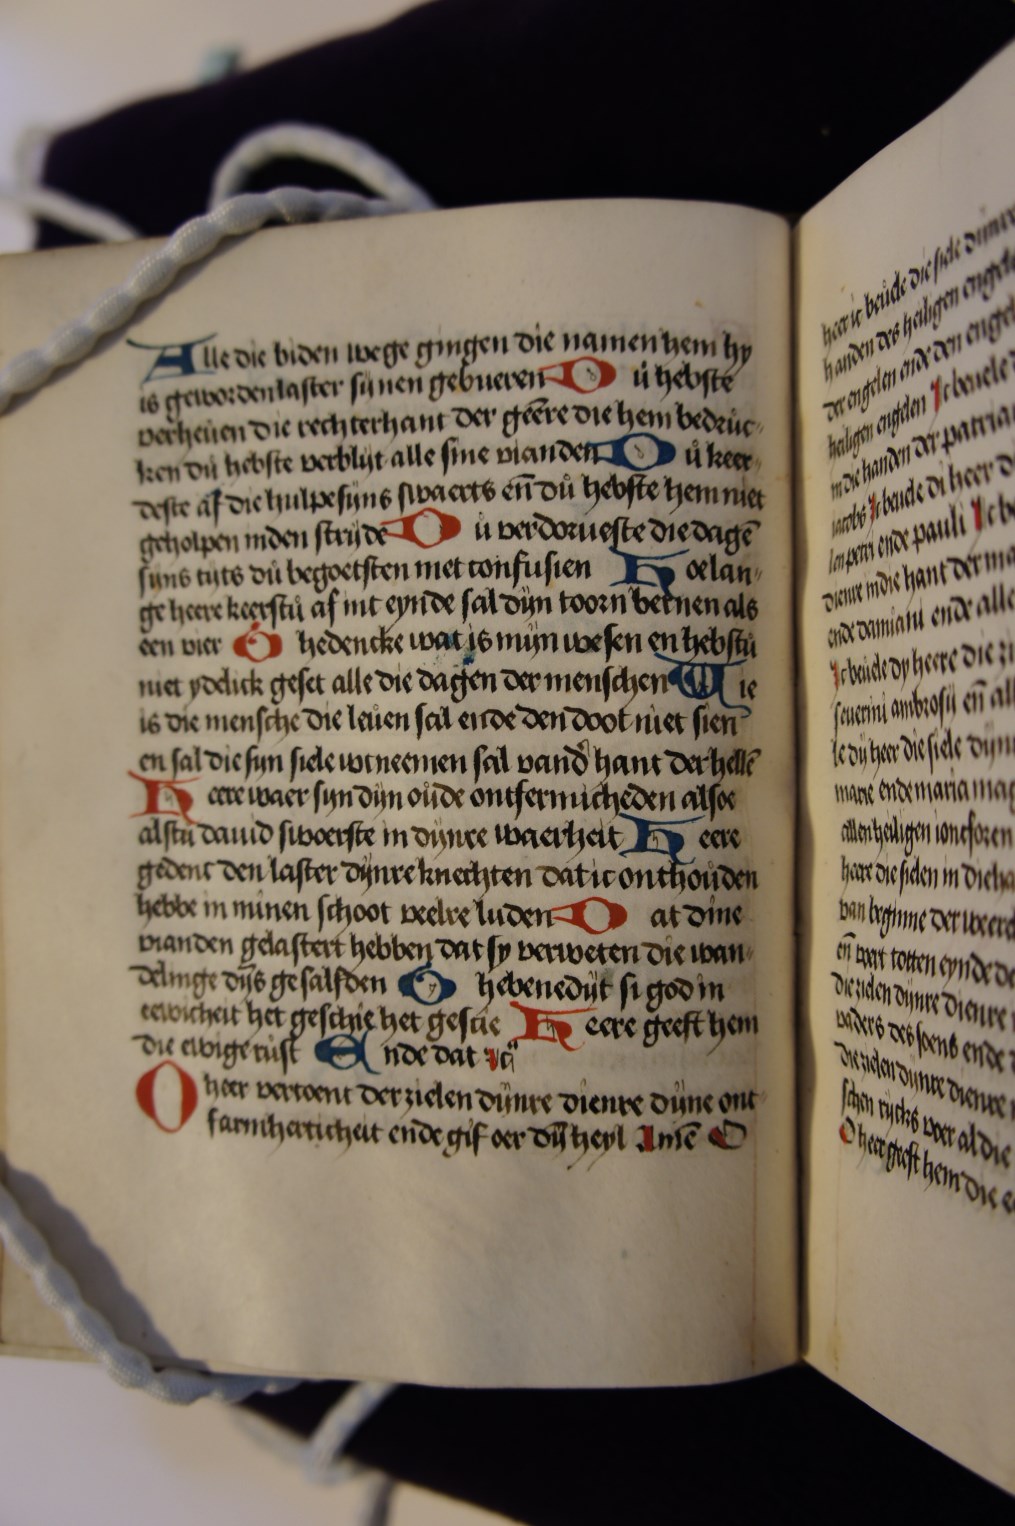 Alle die biden wege gingen die namen hem hy
is geworden laster sijnen gebueren Dů hebste
verheuen die rechterhant der geēre die hem bedruc
ken dů hebste verblijt alle sine vianden Dů keer
deste af die hulpe sijns swaerts en̄ dů hebste hem niet
geholpen inden strijde Dů verdorueste die dagē
sijns tijts dů begoetsten met confusien Hoelan
ge heere keerstů af int eynde sal dijn toorn bernen als
een vier O hedencke wat is mijn wesen en hebstu
niet ydelick geset alle die dagen der menschen Wie
is die mensche die leuen sal ende den doot niet sien
en sal die sijn siele wtneemen sal vand hant der hellē
Heere waer sijn dijn oůde ontfermicheden alsoe
alstu dauid swoerste in dijnre waerheit Heere
gedenc den laster dijnre knechten dat ic onthouden
hebbe in minen schoot veelre luden Dat dine
vianden gelastert hebben dat sy verweten die wan
delinge dijns gesalfden O hebenedijt si god in
eewicheit het geschie het gescie Heere geeft hem
die ewige rust Ende dat ic
O heer vertoent der zielen dijnre dienre dijne ont
farmherticheit ende gif oer dijn heyl Amē O
heer ic beuele die siele dijnre
handen des heiligen engels
der engelen ende den engel
heiligen engelen Ic beuele
in die handen der patria
iacobs Ic beuele di heer d
len petri ende pauli Ic be
dienre in die hant der ma
ende damiani ende alle
Ic beuele dy heere die zi
seuerini ambrosij en̄ all
le dij heer die siele dijn
marie ende maria mag
allen heiligen ioncfrouwen
heere die sielen in die ha
van beginne der weerd
en̄ voert totten eynde de
die zielen dijnre dienre
vaders des soens ende
die zielen dijnre dienre
schen rijcks voer al die
O heer geeft hem die e